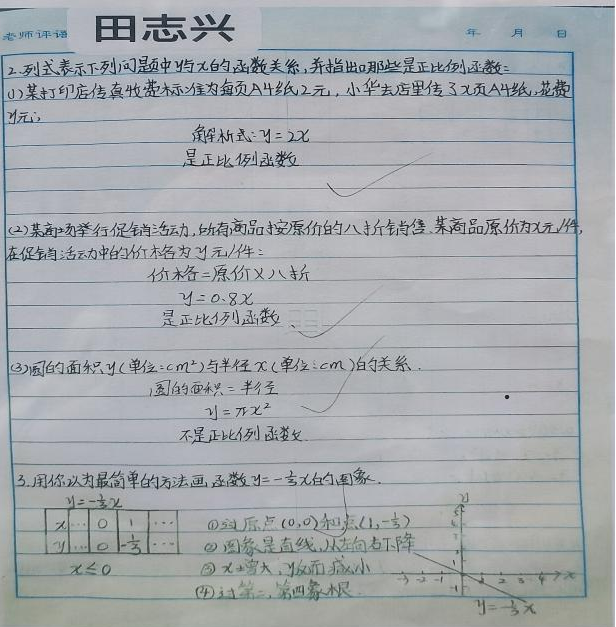 老师评语 田志兴 年 月 日
2.列式表示下列问题中y与x的函数关系,并指出哪些是正比例函数:
(1)某打印店传真收费标准为每页A4纸2元,小华去店里传了x页A4纸,花费
y元;
解析式:y=2x
是正比例函数
(2)某商场举行促销活动,所有商品按原价的八折销售.某商品原价为x元/件,
在促销活动中的价格为y元/件:
价格=原价×八折
y=0.8x
是正比例函数、
(3)圆的面积y(单位:cm²)与半径x(单位:cm)的关系.
圆的面积=半径
y=πx²
不是正比例函数
3.用你认为最简单的方法画函数y=-⅓x的图象.
y=-⅓x
x … 0 1 …
y … 0 -⅓ …
x≤0
①过原点(0,0)和点(1,-⅓)
②图象是直线,从左向右下降
③x增大,y反而减小
(4)过第二、第四象限
y
-3 -2 -1 1 2 3 4 x
y=-⅓x